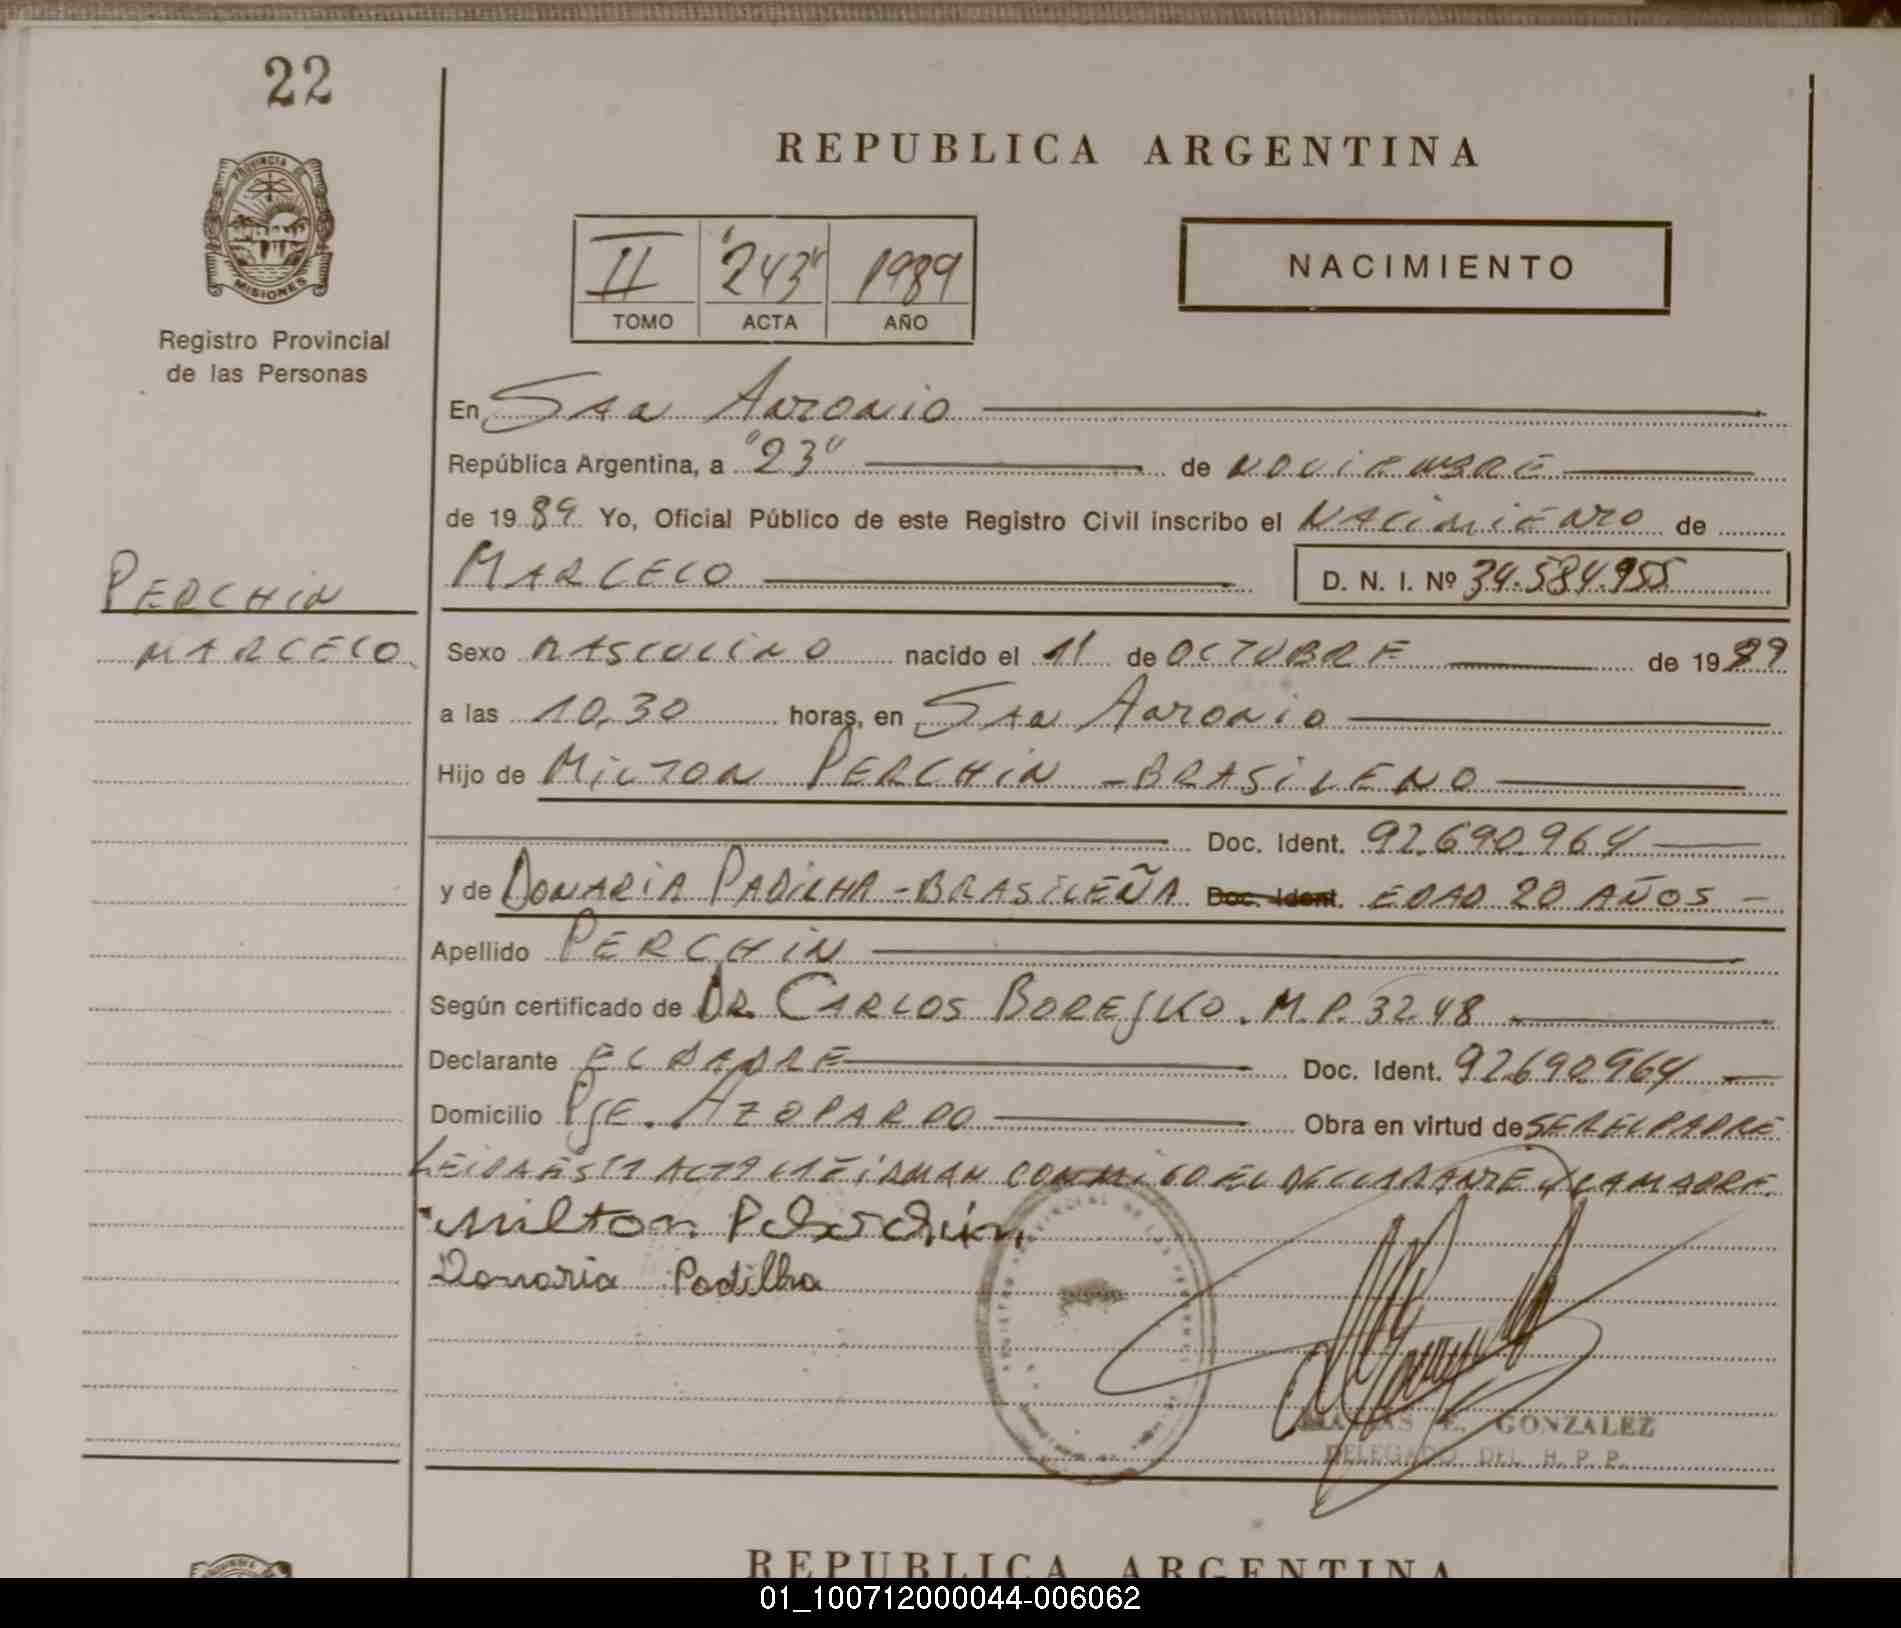 22
REPUBLICA ARGENTINA
PROVINCIA DE
MISIONES
Registro Provincial
de las Personas
II "243" 1989
TOMO ACTA AÑO
NACIMIENTO
En San Antonio
República Argentina, a "23" de NOVIEMBRE
de 1989 Yo, Oficial Público de este Registro Civil inscribo el NACIMIENTO de
MARCELO D. N. I. Nº 34.584.955
PERCHIN
MARCELO
Sexo MASCULINO nacido el 11 de OCTUBRE de 1989
a las 10,30 horas, en San Antonio
Hijo de MILTON PERCHIN - BRASILENO
Doc. Ident. 92.690.964
y de DONARIA PADILHA - BRASILEÑA Doc. Ident. EDAD 20 AÑOS -
Apellido PERCHIN
Según certificado de DR. CARLOS BOREJKO. M.P. 3248
Declarante EL PADRE Doc. Ident. 92.690.964
Domicilio PJE. AZOPARDO Obra en virtud de SER EL PADRE
LEIDA ESTA ACTA LA FIRMAN CONMIGO EL DECLARANTE Y LA MADRE.
Milton Perchin
Donaria Padilha
MATIAS E. GONZALEZ
DELEGADO DEL R. P. P.
REPUBLICA ARGENTINA
01_100712000044-006062